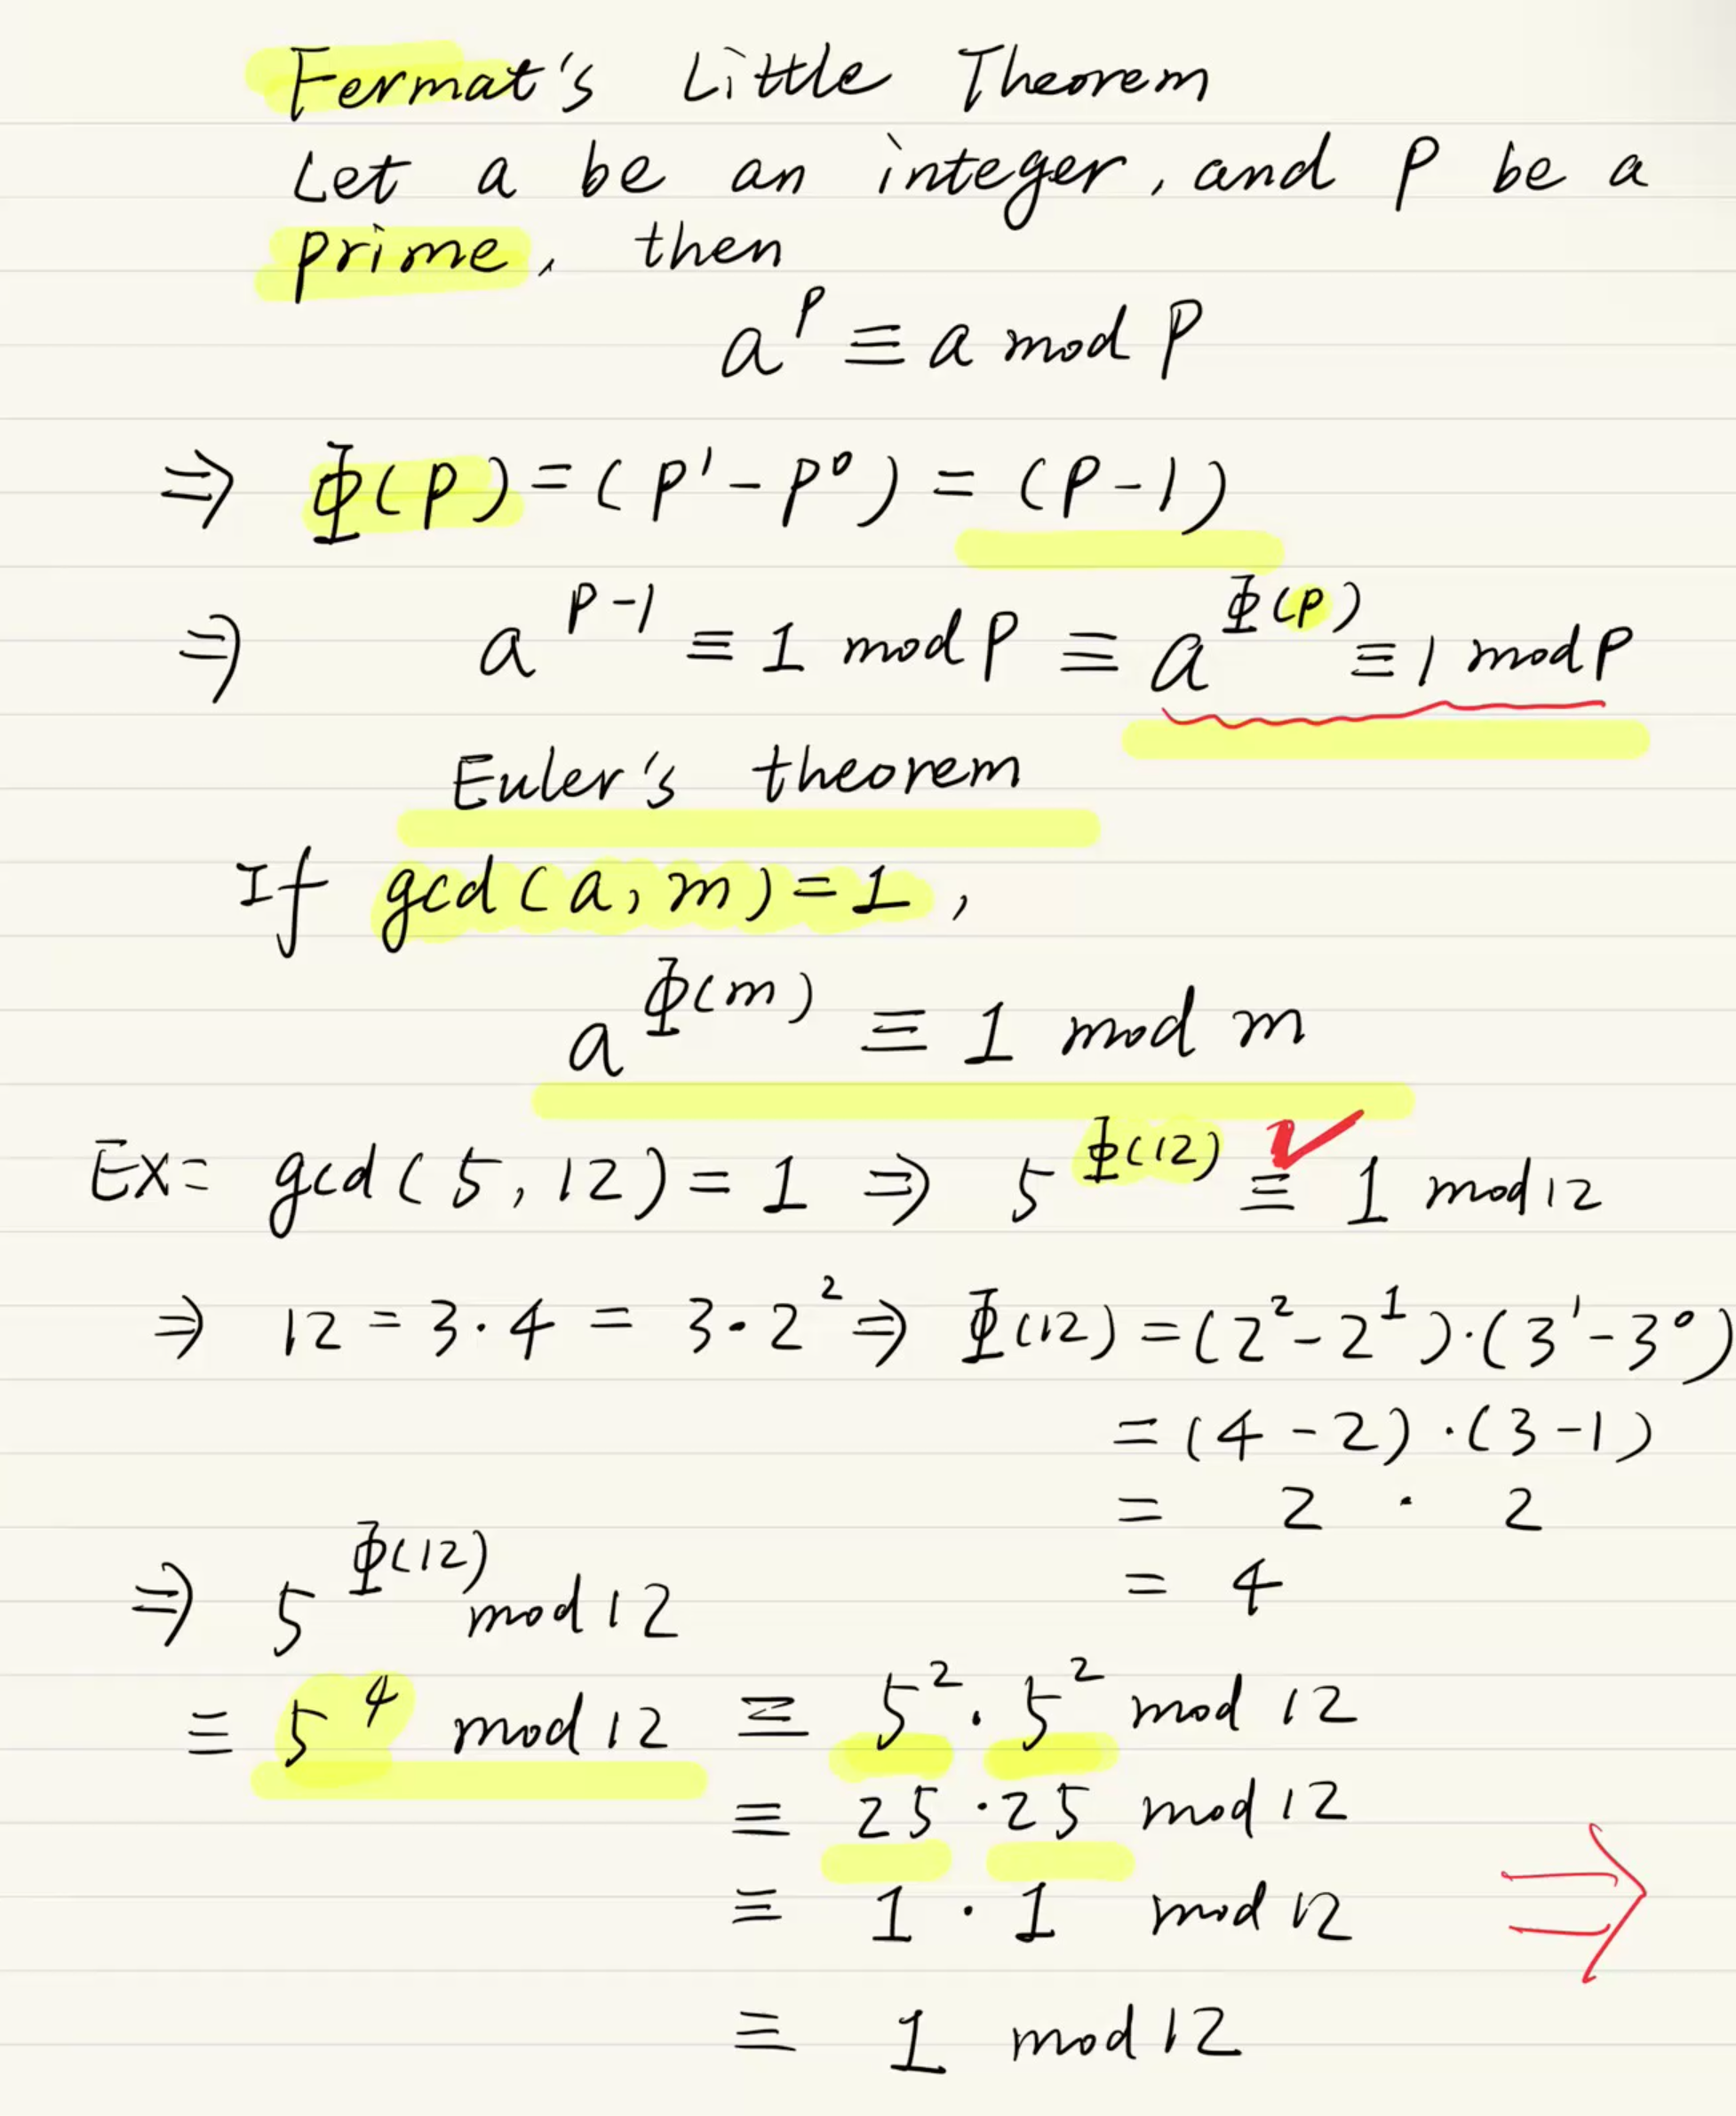 Fermat's Little Theorem
Let a be an integer, and P be a
prime, then
a^p ≡ a mod P
⇒ Φ(p) = (p^1 - p^0) = (P-1)
⇒ a^{p-1} ≡ 1 mod P ≡ a^{Φ(p)} ≡ 1 mod P
Euler's theorem
If gcd(a, m) = 1,
a^{Φ(m)} ≡ 1 mod m
Ex= gcd(5, 12) = 1 ⇒ 5^{Φ(12)} ≡ 1 mod 12
⇒ 12 = 3·4 = 3·2^2 ⇒ Φ(12) = (2^2-2^1)·(3^1-3^0)
= (4-2)·(3-1)
= 2 · 2
= 4
⇒ 5^{Φ(12)} mod 12
≡ 5^4 mod 12 ≡ 5^2 · 5^2 mod 12
≡ 25 · 25 mod 12
≡ 1 · 1 mod 12 ⇒
≡ 1 mod 12